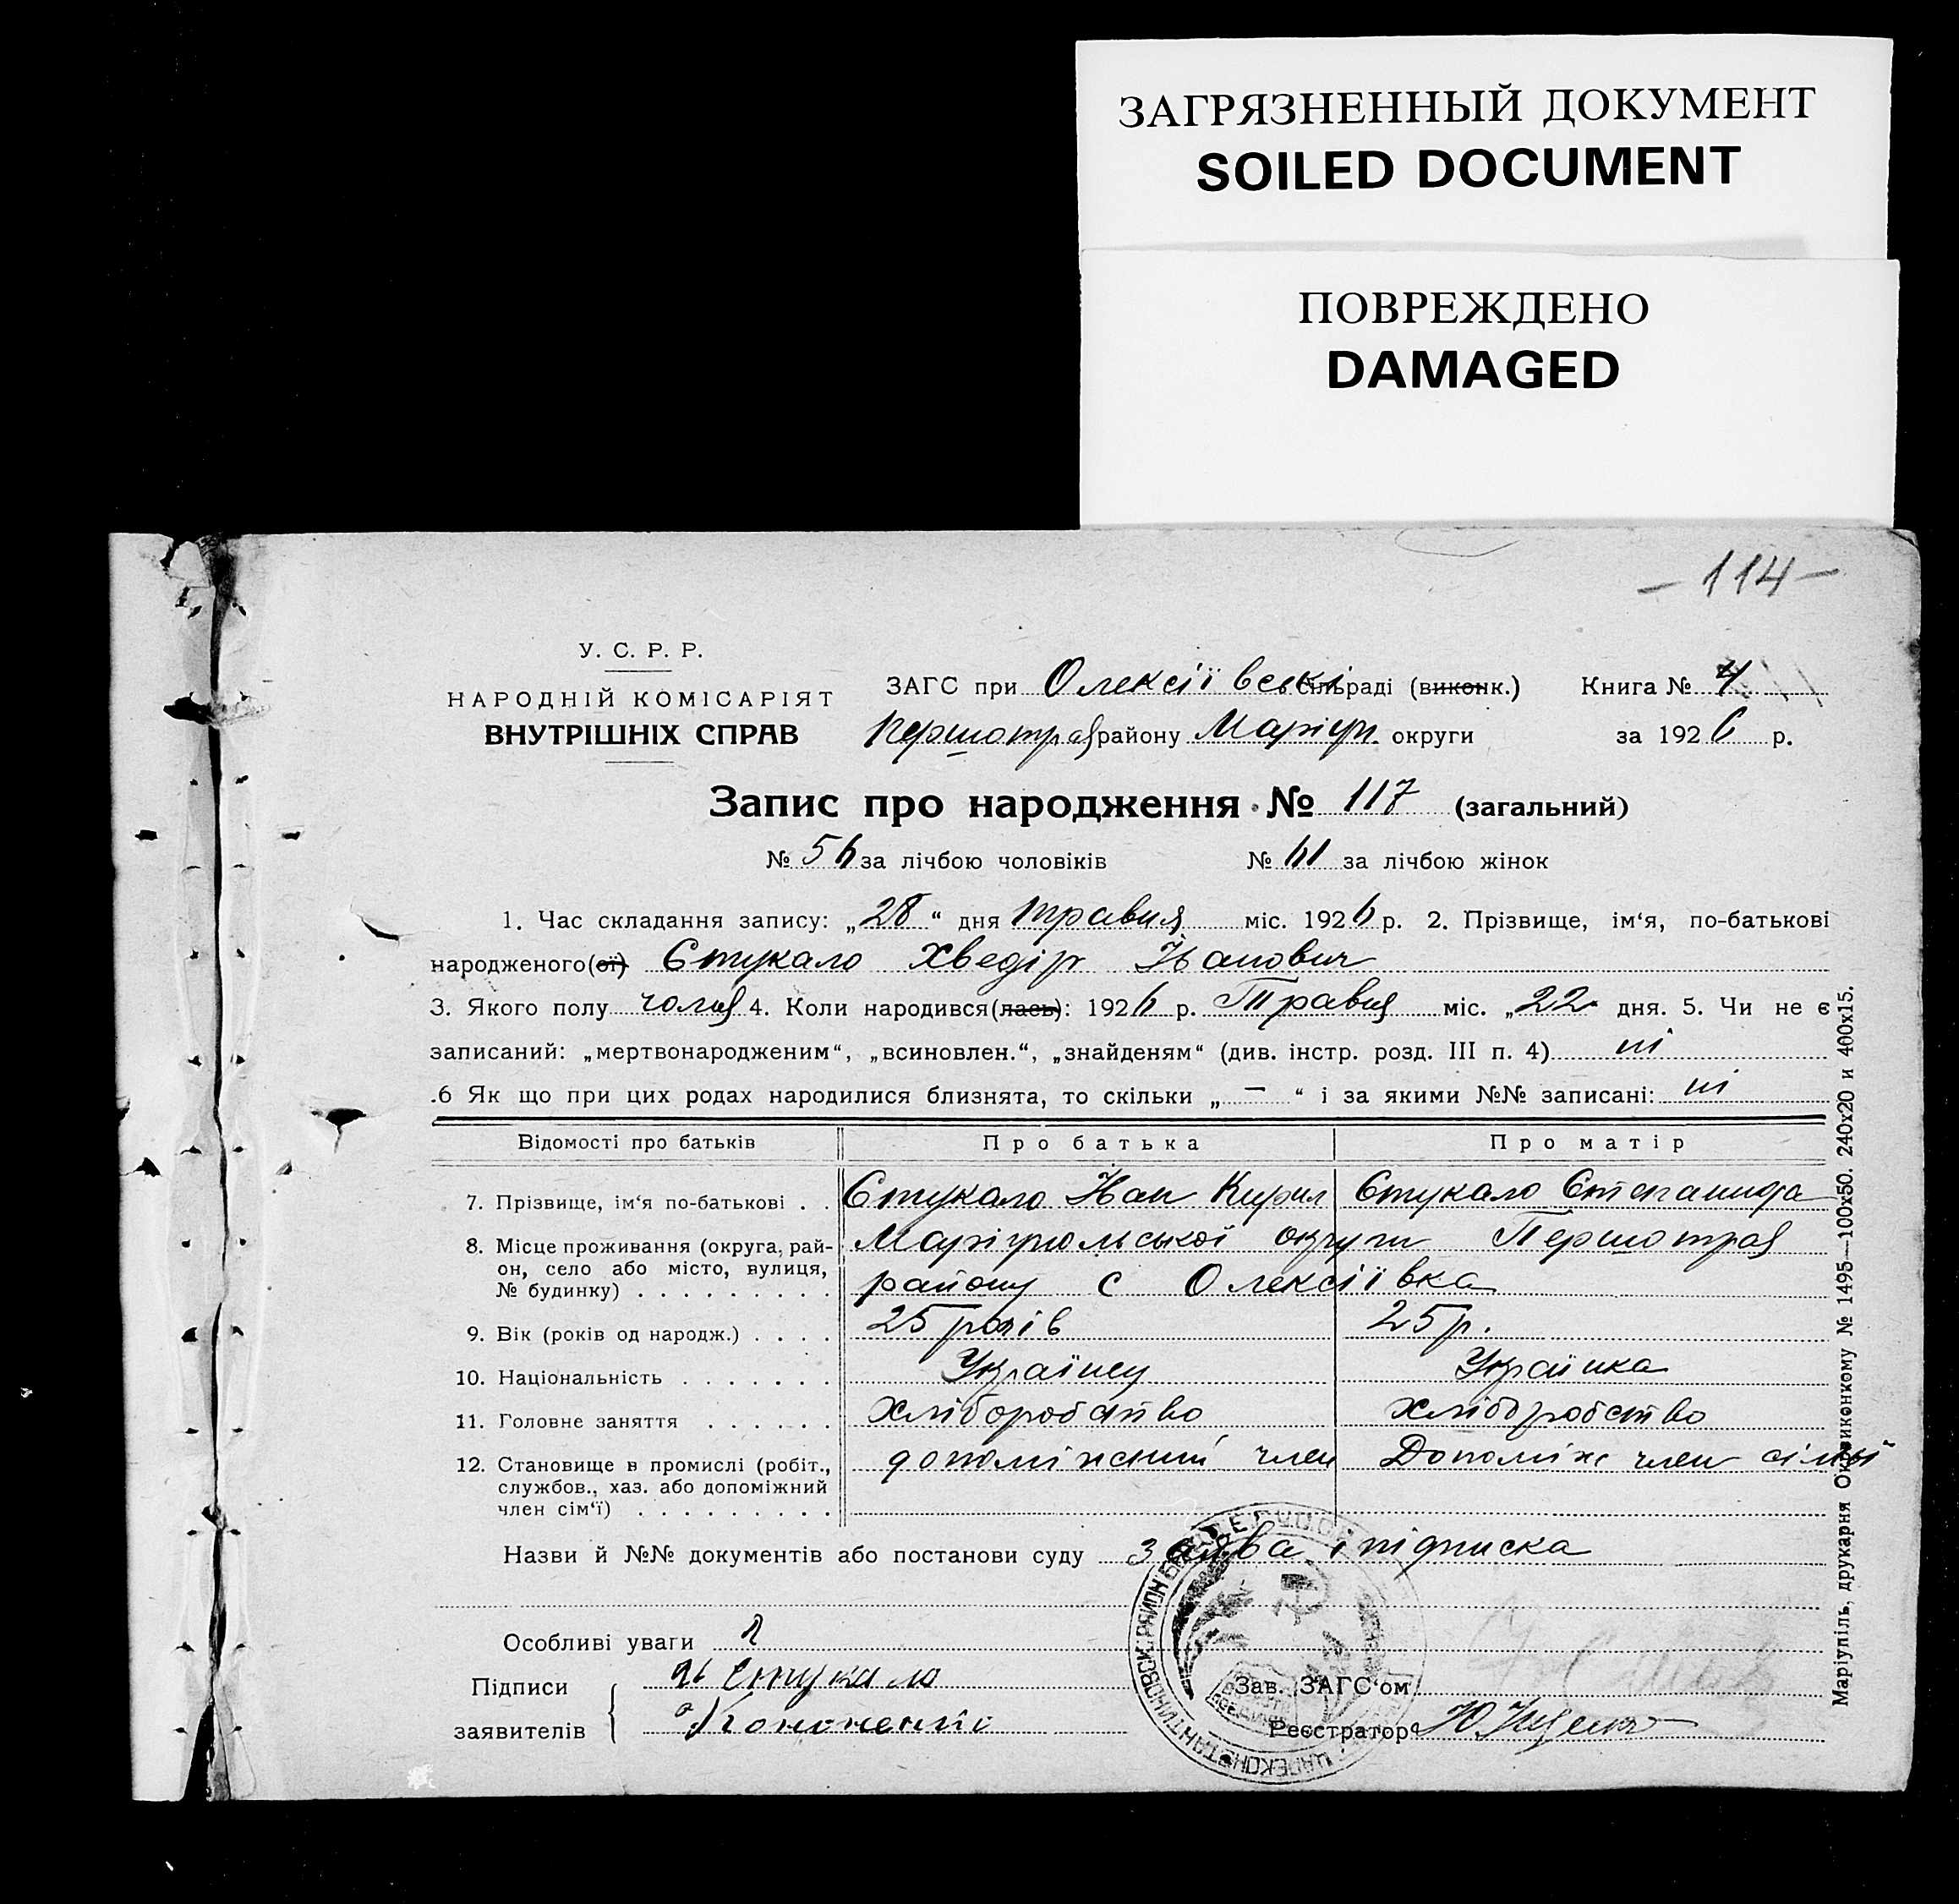 ЗАГРЯЗНЕННЫЙ ДОКУМЕНТ
SOILED DOCUMENT
ПОВРЕЖДЕНО
DAMAGED
– 114 –
У. С. Р. Р.
НАРОДНІЙ КОМІСАРІЯТ
ВНУТРІШНІХ СПРАВ
ЗАГС при Олексіївські сільраді (виконк.) Книга №
Першотрав району Маріуп округи за 1926 р.
Запис про народження № 117 (загальний)
№ 56 за лічбою чоловіків № 61 за лічбою жінок
1. Час складання запису: „28“ дня травня міс. 1926 р. 2. Прізвище, ім‘я, по-батькові
народженого(ої) Стукало Хведір Іванович
3. Якого полу 4. Коли народився(лась): 1926 р. Травня міс. „22 дня. 5. Чи не є
записаний: „мертвонародженим“, „всиновлен.“, „знайденям“ (див. інстр. розд. III п. 4) ні
.6 Як що при цих родах народилися близнята, то скільки „ – “ і за якими №№ записані: ні
Відомості про батьків Про батька Про матір
7. Прізвище, ім‘я по-батькові . . Стукало Іван Кирил Стукало Степанида
8. Місце проживання (округа, рай- Маріупольської округи Першотрав
он, село або місто, вулиця, району с Олексіївка
№ будинку) . . . . . . . . .
9. Вік (років од народж.) . . . . 25 років 25 р.
10. Національність . . . . . . . Українец Українка
11. Головне заняття . . . . . . хліборобство хліборобство
12. Становище в промислі (робіт., допоміжний член Допоміж член сімьї
службов., хаз. або допоміжний
член сім‘ї) . . . . . . . . .
Назви й №№ документів або постанови суду заява і підписка
Особливі уваги
Підписи Стукало Зав. ЗАГС‘ом
заявителів Кононенко Реєстратор
Маріупіль, друкарня Окрвиконкому № 1495—100х50. 240х20 и 400х15.